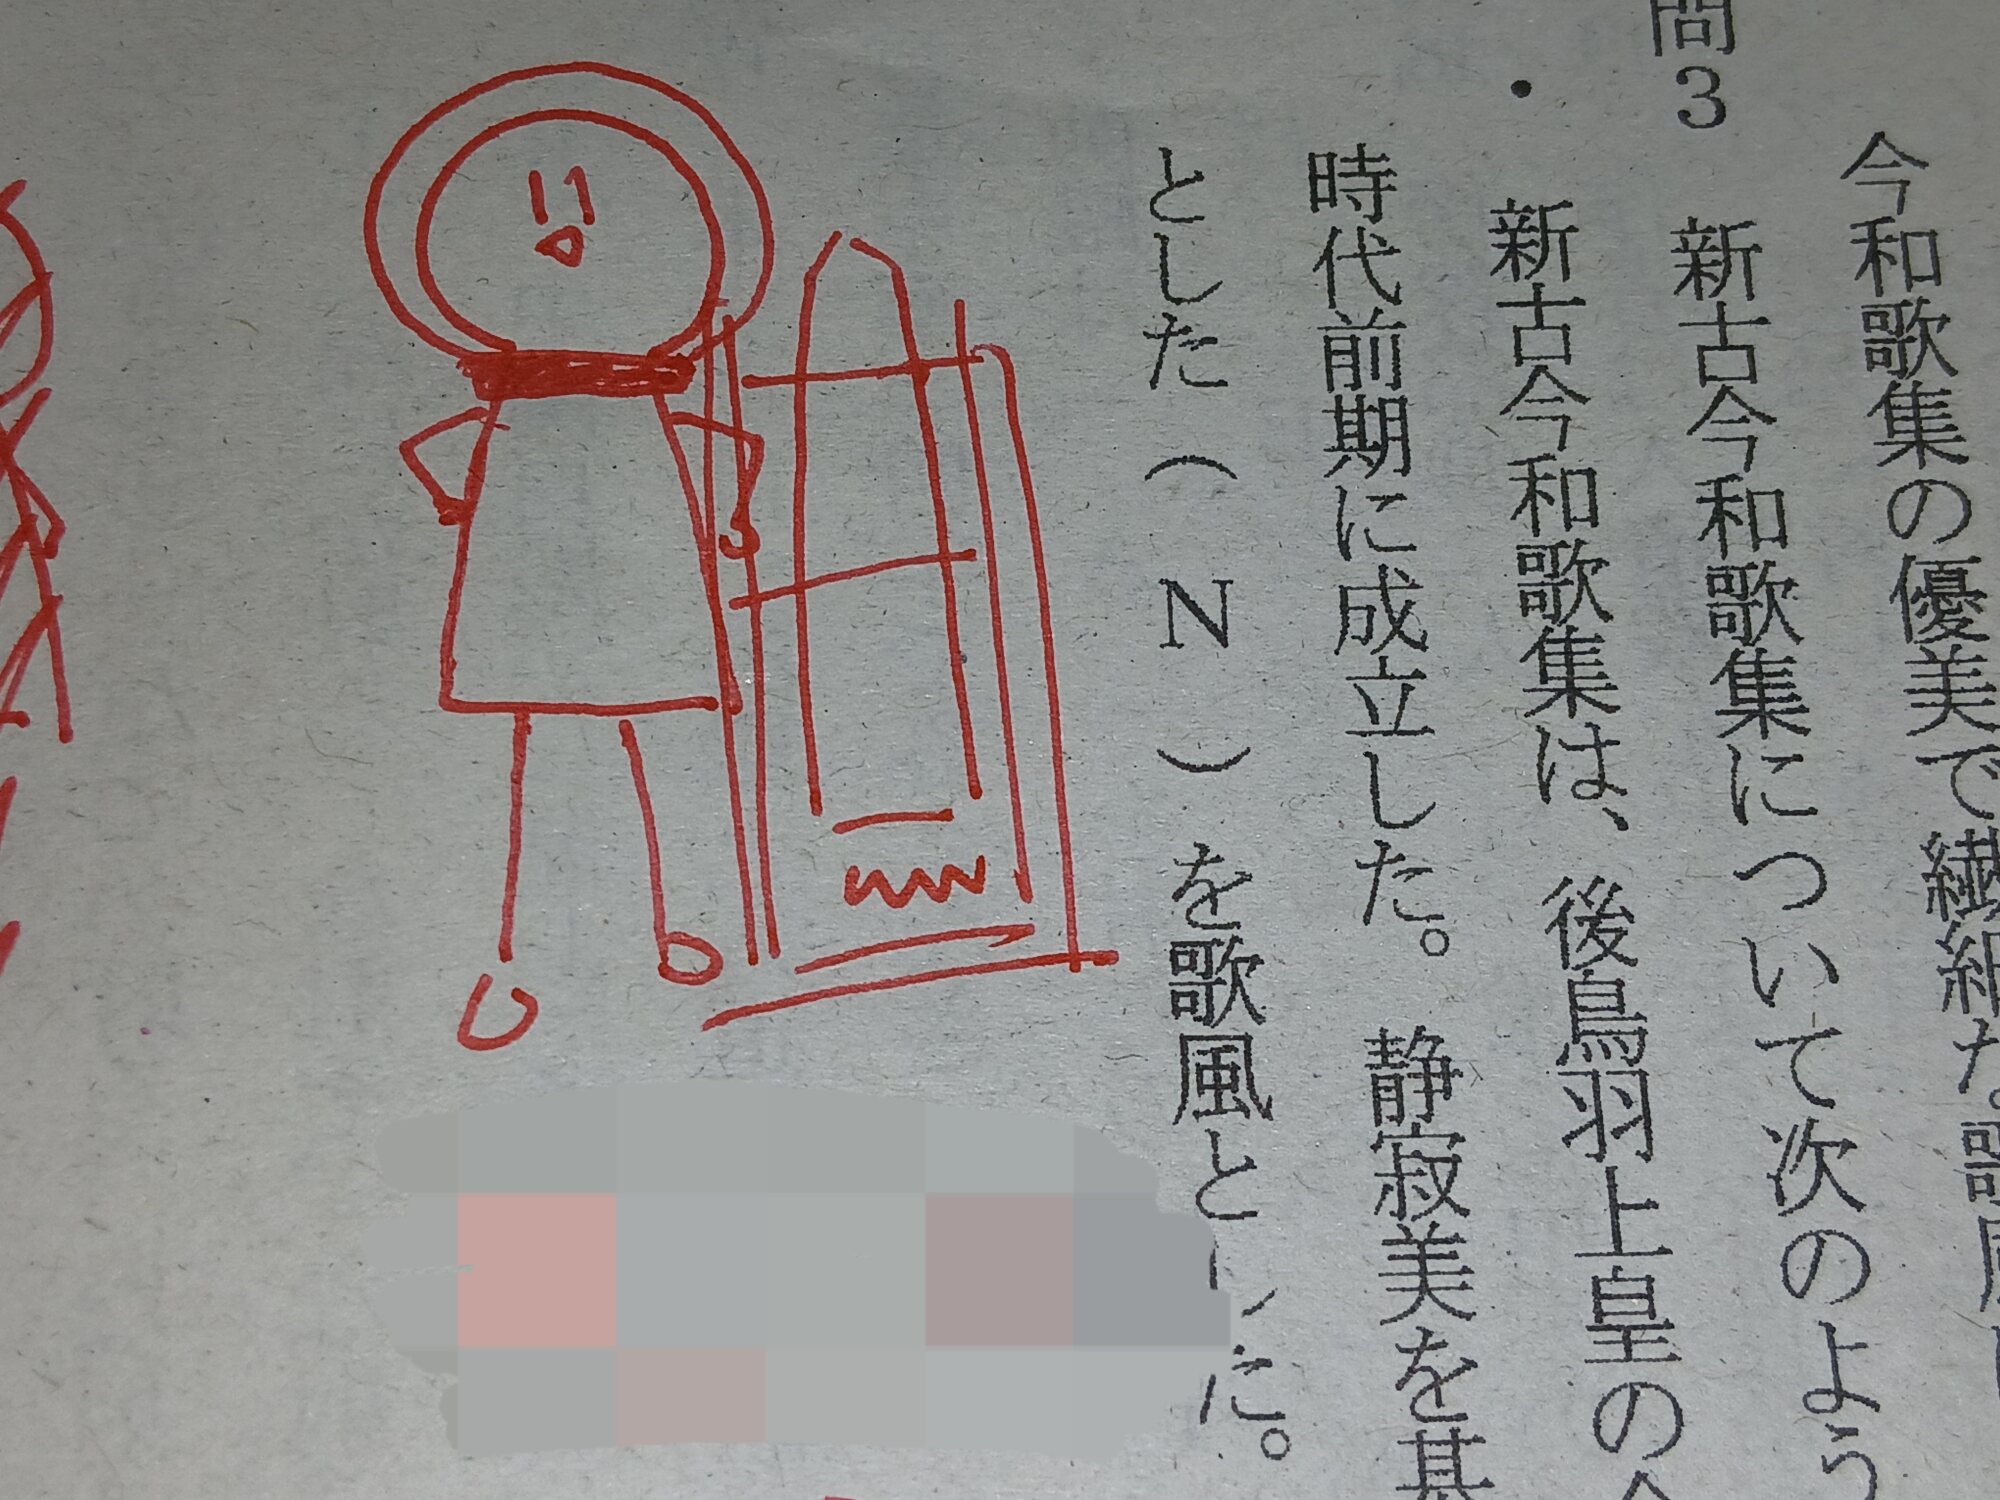 今和歌集の優美で繊細な歌風
問3　新古今和歌集について次のよう
・　新古今和歌集は、後鳥羽上皇の
時代前期に成立した。　静寂美を基
とした（　N　）を歌風とした。